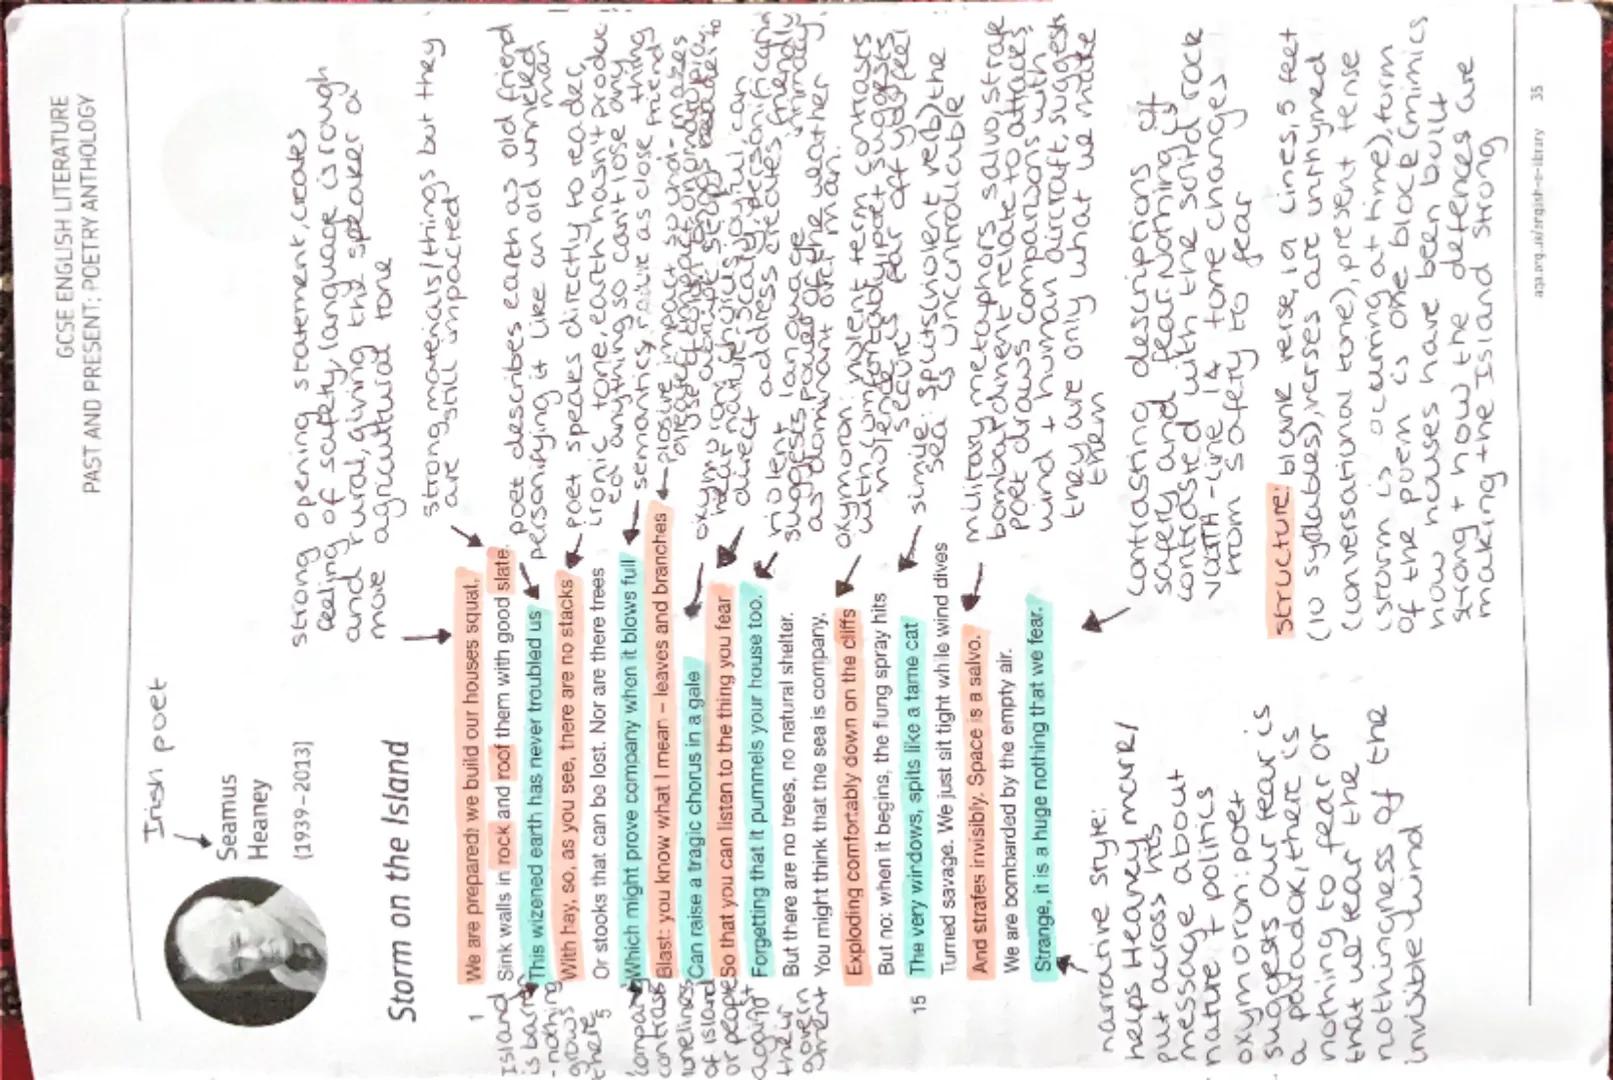 GCSE ENGLISH LITERATURE
PAST AND PRESENT: POETRY ANTHOLOGY
Irish poet
Seamus
Heaney
(1939–2013)
strong opening statement, creates
feeling of safety, language is rough
and rural, giving the speaker a
more agricultural tone
Storm on the Island
strong materials/things but they
are still impacted
1
We are prepared: we build our houses squat,
Sink walls in rock and roof them with good slate.
This wizened earth has never troubled us
With hay, so, as you see, there are no stacks
5
Or stooks that can be lost. Nor are there trees
Which might prove company when it blows full
Blast: you know what I mean – leaves and branches
Can raise a tragic chorus in a gale
So that you can listen to the thing you fear
Forgetting that it pummels your house too.
But there are no trees, no natural shelter.
You might think that the sea is company,
Exploding comfortably down on the cliffs
But no: when it begins, the flung spray hits
15
The very windows, spits like a tame cat
Turned savage. We just sit tight while wind dives
And strafes invisibly. Space is a salvo.
We are bombarded by the empty air.
Strange, it is a huge nothing that we fear.
Island
is barren
- nothing
grows
there
company
contrasts
loneliness
of island
or people
against
their
government
poet describes earth as old friend
personifying it like an old wrinkled
man
poet speaks directly to reader,
ironic tone, earth hasn't produc
ed anything so can't lose any
thing
direct address creates friendly
violent language
suggests power of the weather
as dominant over man.
oxymoron: violent term contrasts
simile: spits (violent verb) the
sea is uncontrollable
military metaphors, salvo, strafe
bombardment relate to attacks
poet draws comparisons with
wind + human aircraft, suggests
they are only what we make
them
contrasting descriptions of
safety and fear. Naming of
contrasted with the solid rock
VOLTA - line 14 tone changes
from safety to fear
narrative style:
helps Heaney mark/
put across his
message about
nature + politics
oxymoron: poet
suggests our fear is
a paradox, there is
nothing to fear or
that we fear the
nothingness of the
invisible wind
structure: blank verse, 19 lines, 5 feet
(10 syllables), verses are unrhymed
(conversational tone), present tense
(storm is occuring at time), form
of the poem is one block (mimics
how houses have been built
strong + how the defences are
making the Island strong
aqa.org.uk/english-e-library 35